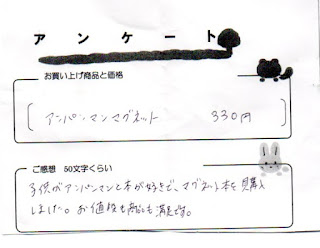 アンケート
お買い上げ商品と価格
アンパンマンマグネット 330円
ご感想 50文字くらい
子供がアンパンマンと本が好きで、マグネット本を購入
しました。お値段も商品も満足です。